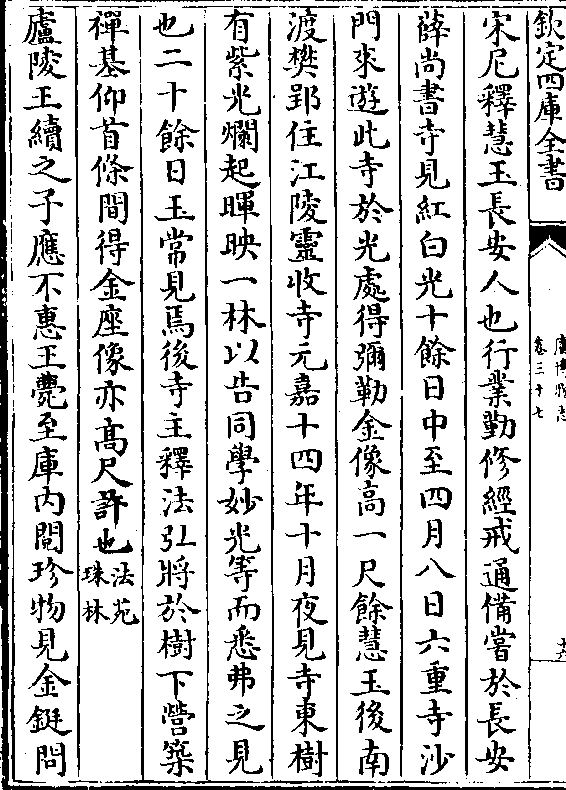 欽定四庫全書
廣博物志
卷三十七
宋尼釋慧玉長安人也行業勤修經戒通備嘗於長安
薛尚書寺見紅白光十餘日中至四月八日六重寺沙
門來遊此寺於光處得彌勒金像高一尺餘慧玉後南
渡樊郢住江陵靈收寺元嘉十四年十月夜見寺東樹
有紫光爛起暉映一林以告同學妙光等而悉弗之見
也二十餘日玉常見焉後寺主釋法弘將於樹下營築
禪基仰首條間得金座像亦高尺許也法苑
珠林
廬陵王續之子應不惠王薨至庫內閱珍物見金鋌問